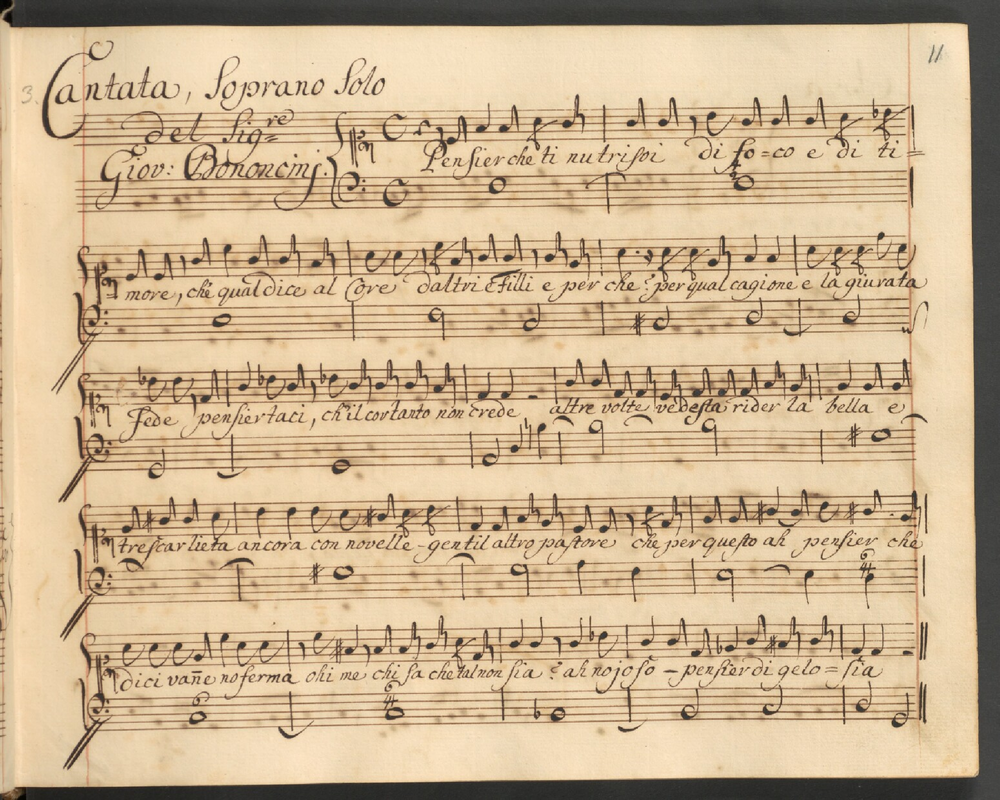 11
3. Cantata, Soprano Solo
del Sig.re
Giov: Bononcinj.
Pensier che ti nutrissi di fo=co e di ti=
more, che qual dice al Core d'altri è Filli e per che? per qual cagione e la giurata
Fede pensier taci, ch'il cor tanto non crede altre volte vedesta rider la bella e
trescar lieta ancora con novelle - gentil altro pastore che per questo ah pensier che
6
4
dici vane no ferma ohi me chi sa che tal non sia? ah nojoso - pensier di gelo=sia
6
6
4